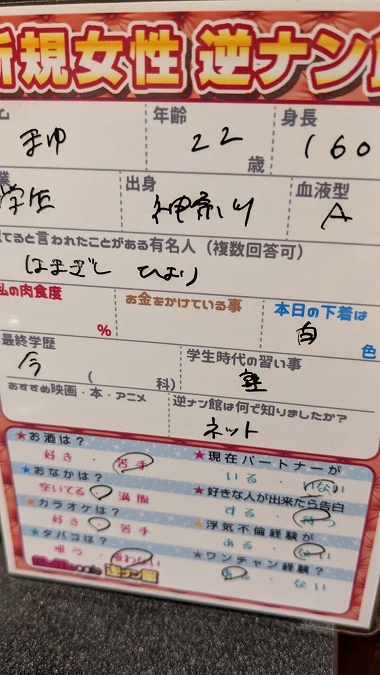 新規女性 逆ナン館
年齢 身長
まゆ 22歳 160
業 出身 血液型
学生 神奈川 A
似てると言われたことがある有名人（複数回答可）
はまぎし ひより
私の肉食度 お金をかけている事 本日の下着は
% 白色
最終学歴 学生時代の習い事
今 ( 科) 塾
おすすめ映画・本・アニメ 逆ナン館は何で知りましたか？
ネット
★お酒は？ ★現在パートナーが
好き・苦手 いる・いない
★おなかは？ ★好きな人が出来たら告白
空いてる・満腹 する・待つ
★カラオケは？ ★浮気不倫経験が
好き・苦手 ある・ない
★タバコは？ ★ワンチャン経験？
吸う・吸わない ある・ない
逆ナン館